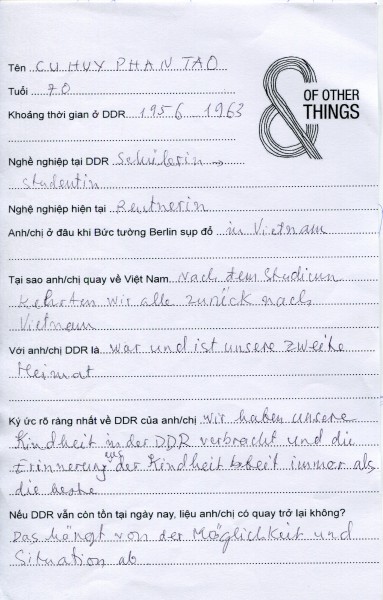 Tên CU HUY PHAN TAO
Tuổi 70
Khoảng thời gian ở DDR 1956 1963
& OF OTHER
THINGS
Nghề nghiệp tại DDR Schülerin →
Studentin
Nghệ nghiệp hiện tại Rentnerin
Anh/chị ở đâu khi Bức tường Berlin sụp đổ in Vietnam
Tại sao anh/chị quay về Việt Nam Nach dem Studium
kehrten wir alle zurück nach
Vietnam
Với anh/chị DDR là war und ist unsere zweite
Heimat
Ký ức rõ ràng nhất về DDR của anh/chị wir haben unsere
Kindheit in der DDR verbracht und die
Erinnerung der Kindheit bleit immer als
die beste
Nếu DDR vẫn còn tồn tại ngày nay, liệu anh/chị có quay trở lại không?
Das hängt von der Möglichkeit und
Situation ab